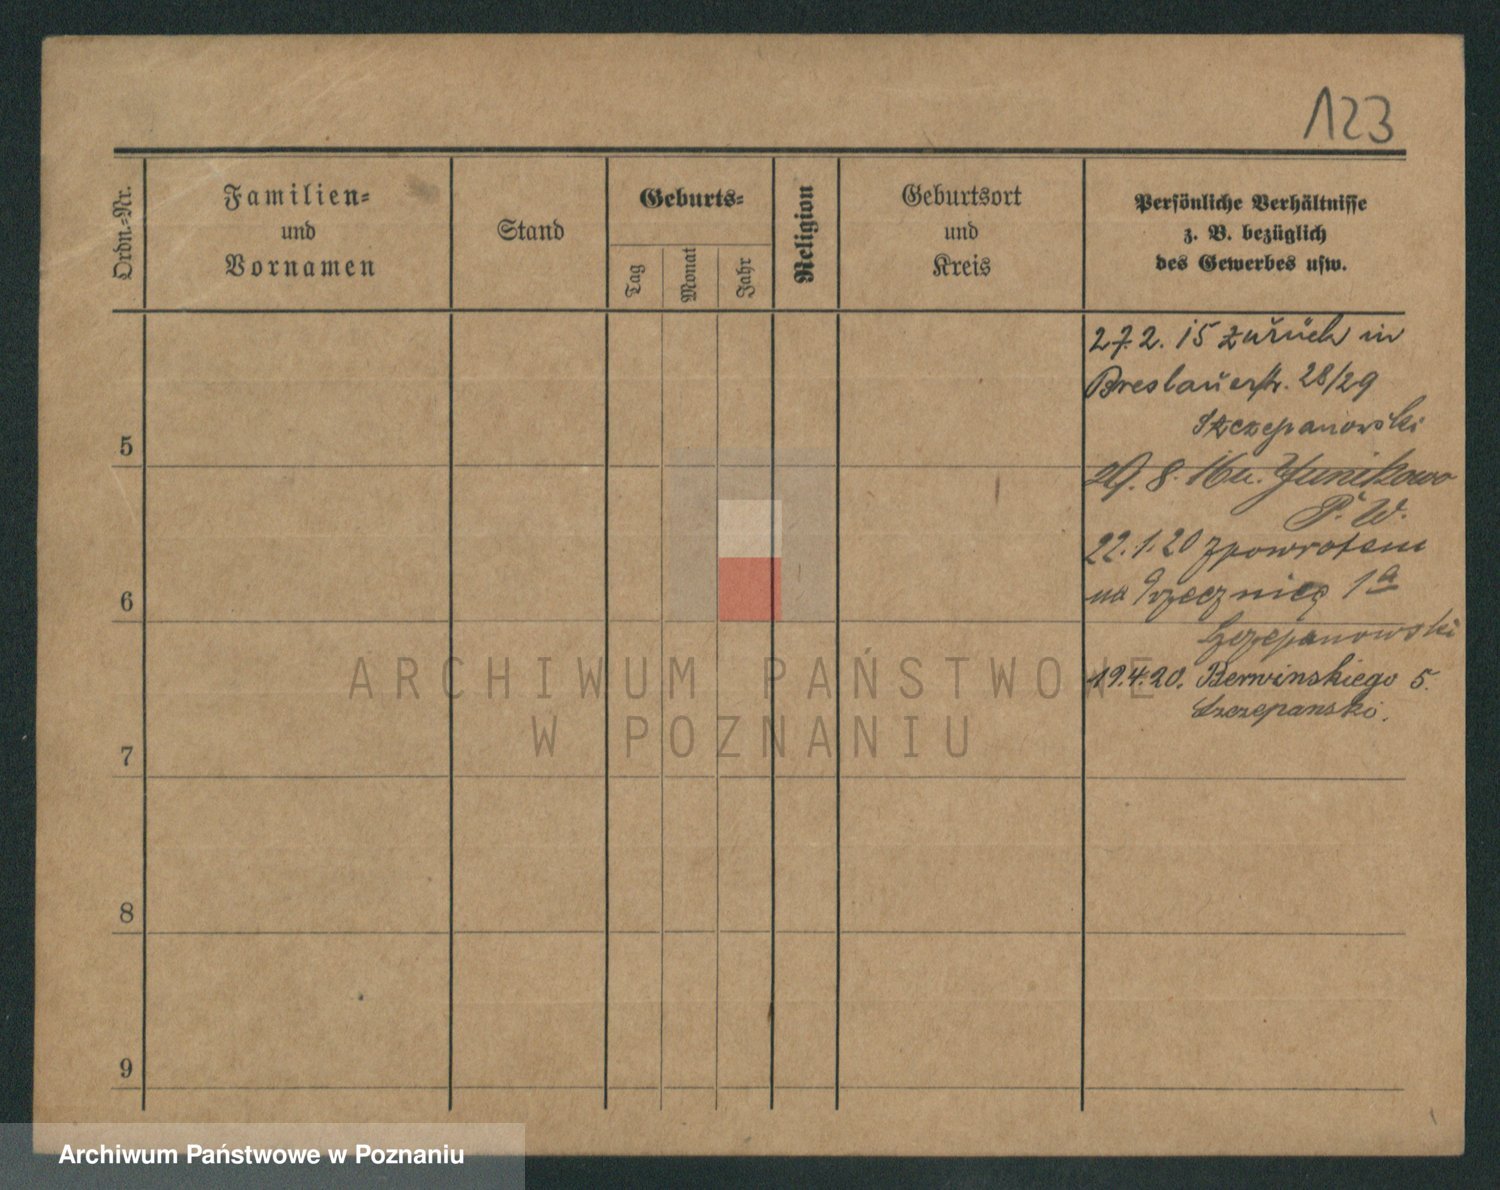 123
Ordn.-Nr.
Familien-
und
Vornamen
Stand
Geburts-
Tag
Monat
Jahr
Religion
Geburtsort
und
Kreis
Persönliche Verhältnisse
z. B. bezüglich
des Gewerbes usw.
27.2.15 zurück in
Breslauerstr. 28/29
Szczepanowski
5
29.8. Junikowo
P. W.
22.1.20 zpowrotem
na 1a
6
Szczepanowski
19.4.20. Berwinskiego 5.
Szczepanski.
7
8
9
ARCHIWUM PAŃSTWOWE
W POZNANIU
Archiwum Państwowe w Poznaniu